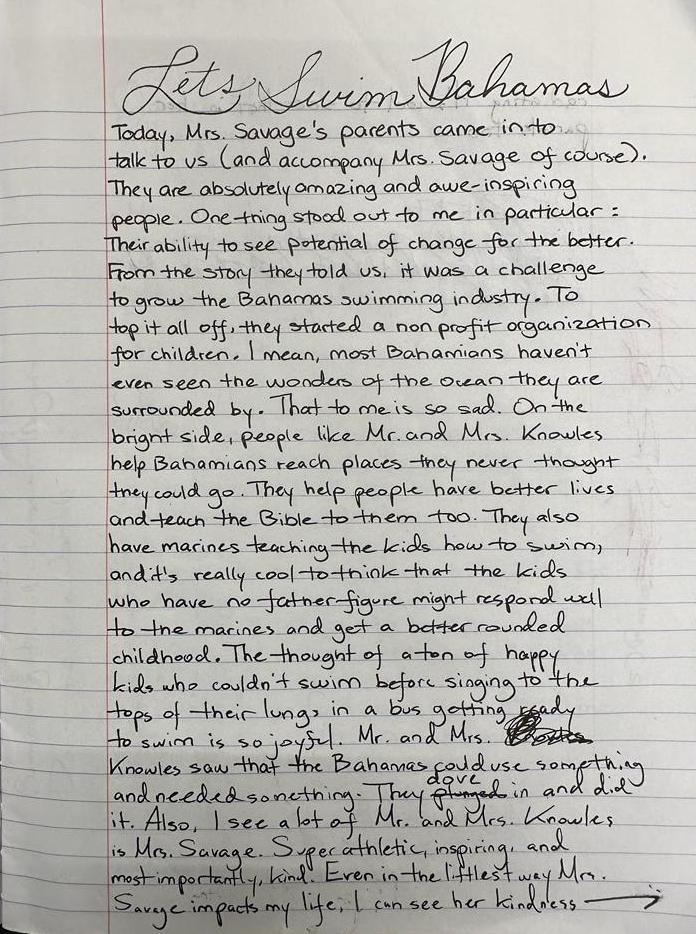 Lets, Swim Bahamas
Today, Mrs. Savage's parents came in to
talk to us (and accompany Mrs. Savage of course).
They are absolutely amazing and awe-inspiring
people. One thing stood out to me in particular:
Their ability to see potential of change for the better.
From the story they told us, it was a challenge
to grow the Bahamas swimming industry. To
top it all off, they started a non profit organization
for children. I mean, most Bahamians haven't
even seen the wonders of the ocean they are
surrounded by. That to me is so sad. On the
bright side, people like Mr. and Mrs. Knowles
help Bahamians reach places they never thought
they could go. They help people have better lives
and teach the Bible to them too. They also
have marines teaching the kids how to swim,
and it's really cool to think that the kids
who have no father-figure might respond well
to the marines and get a better rounded
childhood. The thought of a ton of happy
kids who couldn't swim before singing to the
tops of their lungs in a bus getting ready
to swim is so joyful. Mr. and Mrs.
Knowles saw that the Bahamas could use something
and needed something. They plunged dove in and did
it. Also, I see a lot of Mr. and Mrs. Knowles
is Mrs. Savage. Super athletic, inspiring, and
most importantly, kind. Even in the littlest way Mrs.
Savage impacts my life, I can see her kindness →